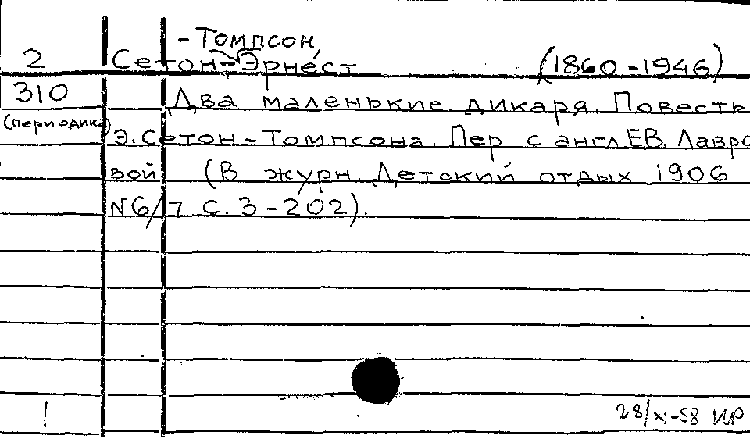 -Томпсон,
2 Сетон-Эрнест (1860-1946)
310 Два маленькие дикаря. Повесть
(периодика) Э. Сетон-Томпсона. Пер с англ Е.В. Лавро
вой (В журн. Детский отдых 1906
N6/7 С. 3-202).
! 28/X-58 ИР